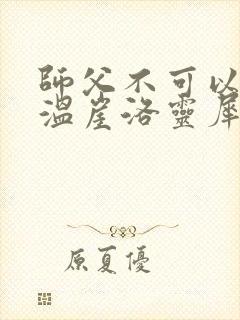 師父不可以
溫崖洛靈犀
原夏優